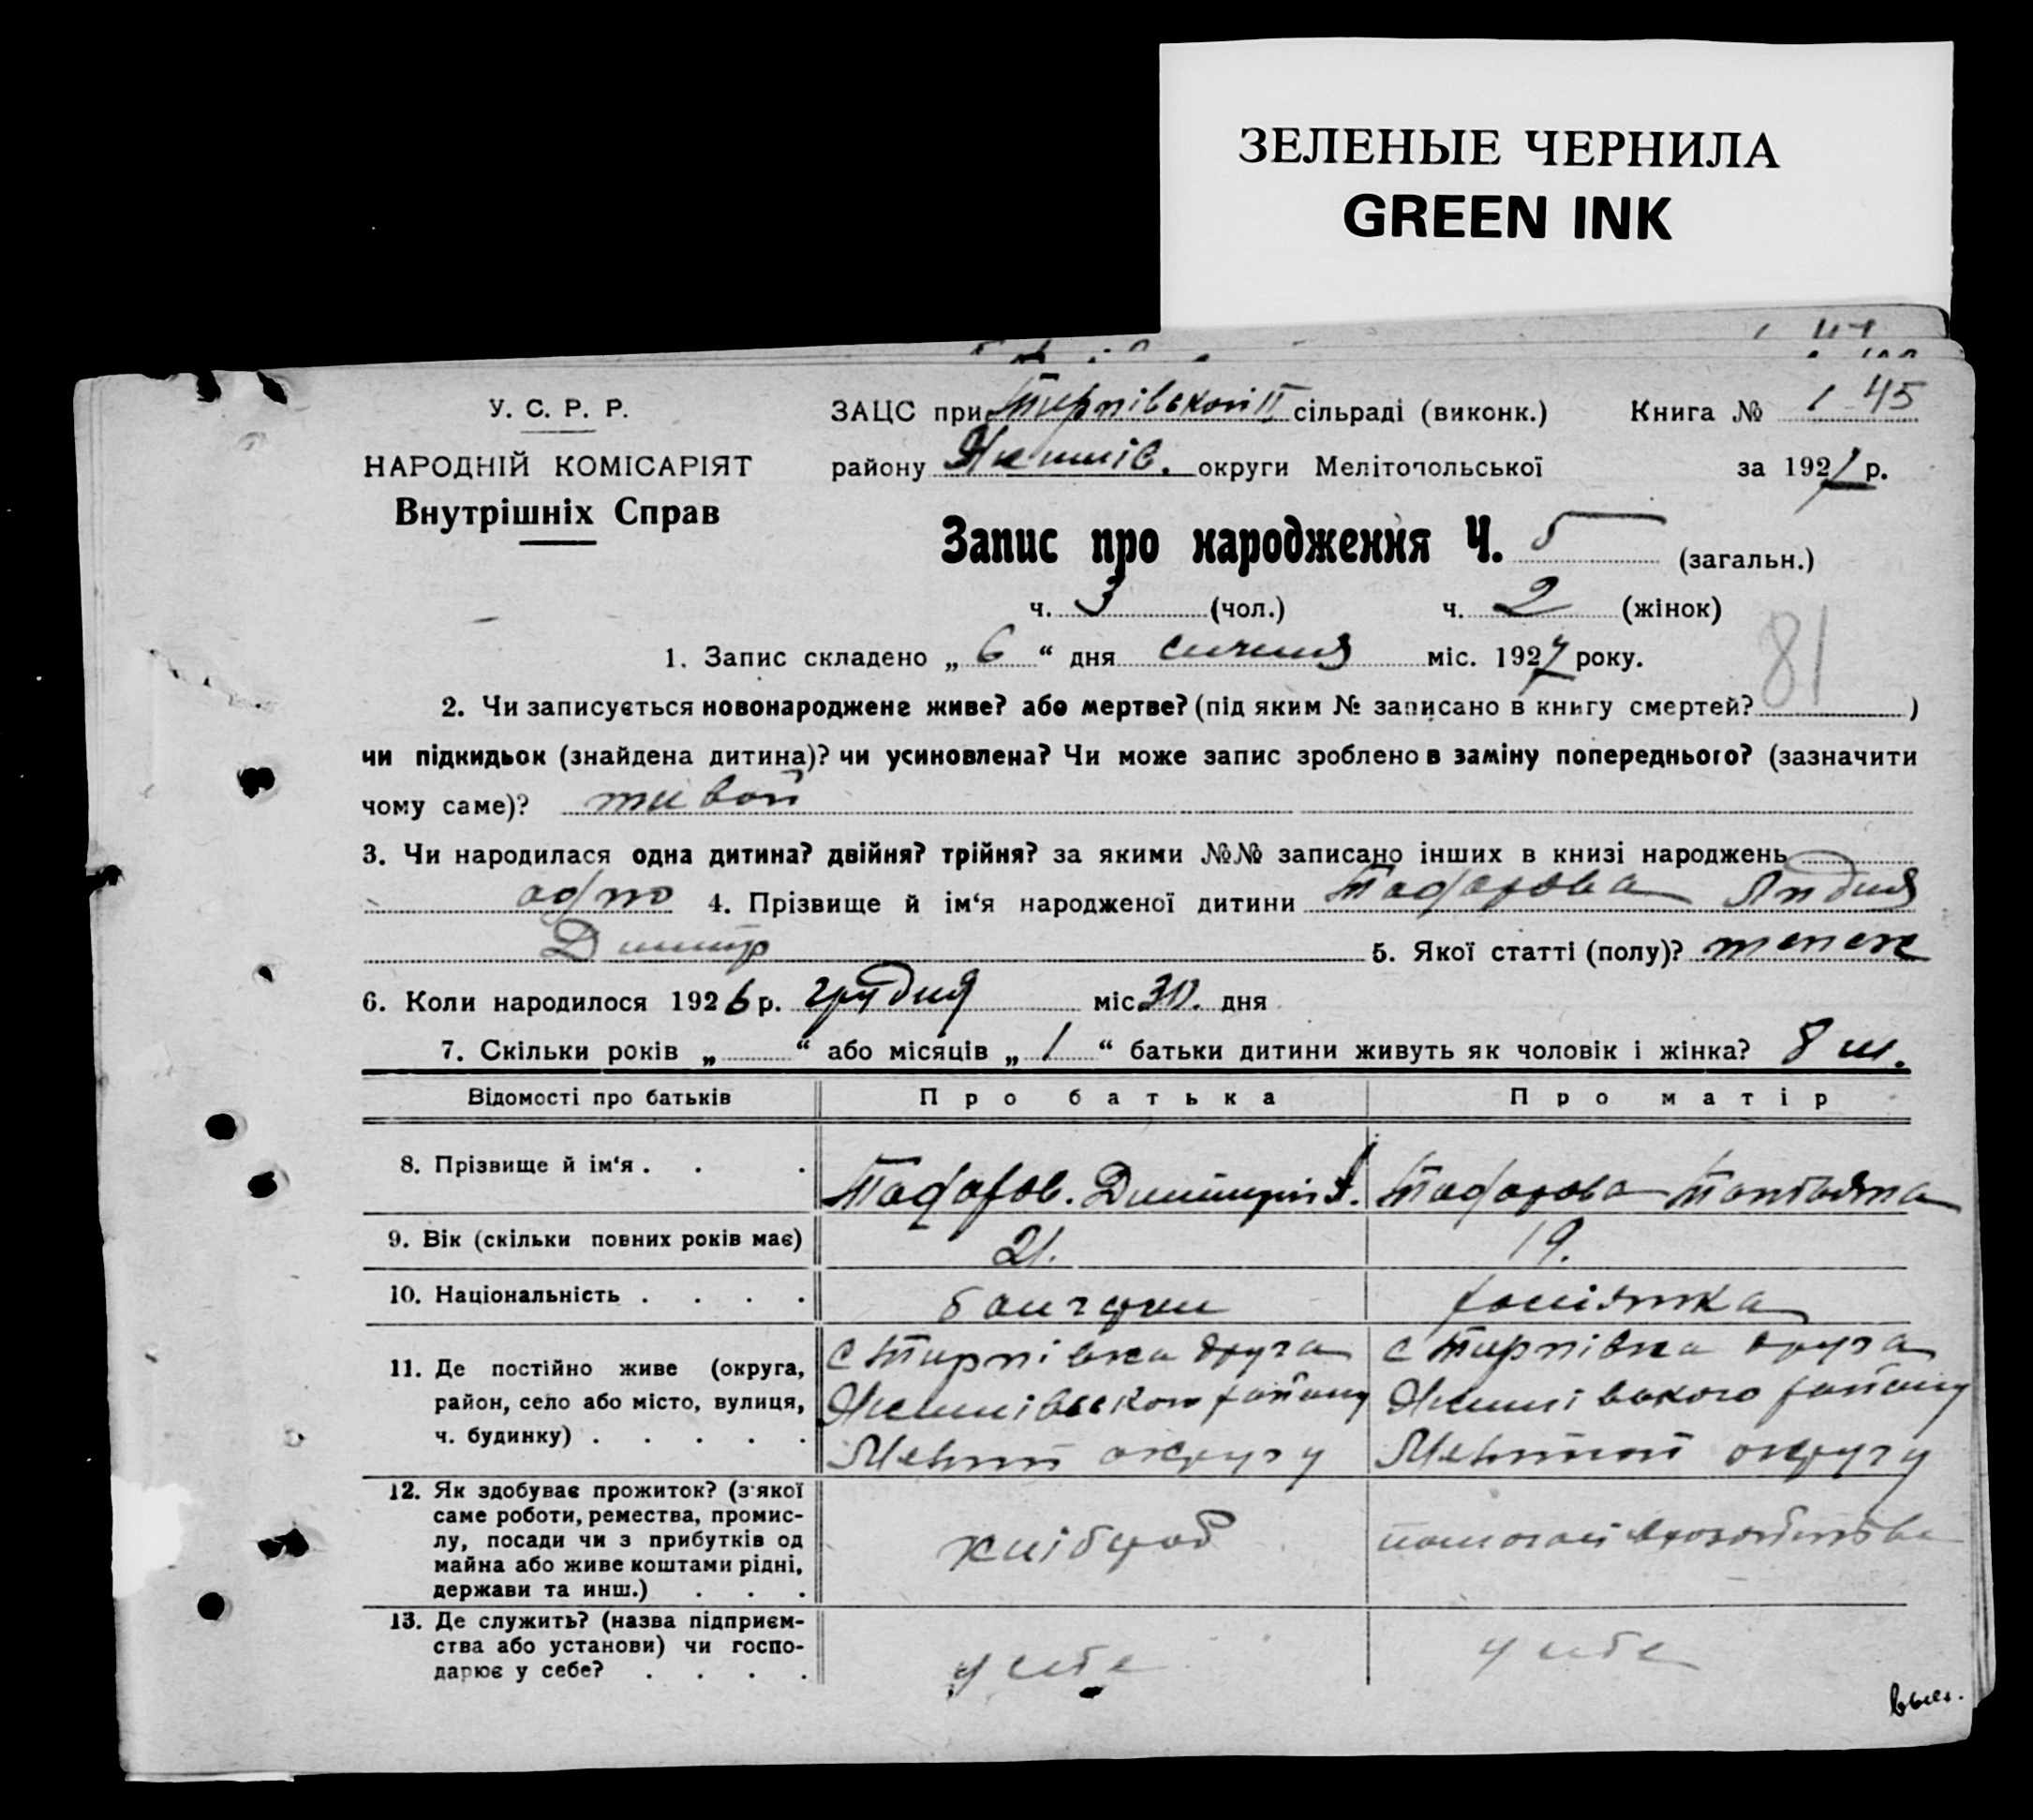 ЗЕЛЕНЫЕ ЧЕРНИЛА
GREEN INK
У. С. Р. Р.
НАРОДНІЙ КОМІСАРІЯТ
Внутрішніх Справ
ЗАЦС при Тирнівскоп ІІ сільраді (виконк.) Книга № 1 45
району Якимів. округи Мелітопольської за 1927 р.
Запис про народження Ч. 5 (загальн.)
ч. 3 (чол.) ч. 2 (жінок)
81
1. Запис складено „ 6 “ дня сичния міс. 1927 року.
2. Чи записується новонароджене живе? або мертве? (під яким № записано в книгу смертей? )
чи підкидьок (знайдена дитина)? чи усиновлена? Чи може запис зроблено в заміну попереднього? (зазначити
чому саме)? живой
3. Чи народилася одна дитина? двійня? трійня? за якими №№ записано інших в книзі народжень
одно 4. Прізвище й ім‘я народженої дитини Тодорова Лидия
Димитр 5. Якої статті (полу)?
6. Коли народилося 1926 р. грудня міс 30. дня
7. Скільки років „ “ або місяців „ 1 “ батьки дитини живуть як чоловік і жінка? 8 м.
Відомості про батьків Про батька Про матір
8. Прізвище й ім‘я . . . Тодоров. Димитрій Тодорова Татьяна
9. Вік (скільки повних років має) 21. 19.
10. Національність . . . . болгарин росіянка
11. Де постійно живе (округа, с Тирнівка друга с Тирнівка друга
район, село або місто, вулиця, Якимівского району Якимівского району
ч. будинку) . . . . . Меліт округу округу
12. Як здобуває прожиток? (з якої
саме роботи, ремества, промис-
лу, посади чи з прибутків од хлібороб
майна або живе коштами рідні,
держави та инш.) . . .
13. Де служить? (назва підприєм-
ства або установи) чи госпо-
дарює у себе? . . . . у себе у себе